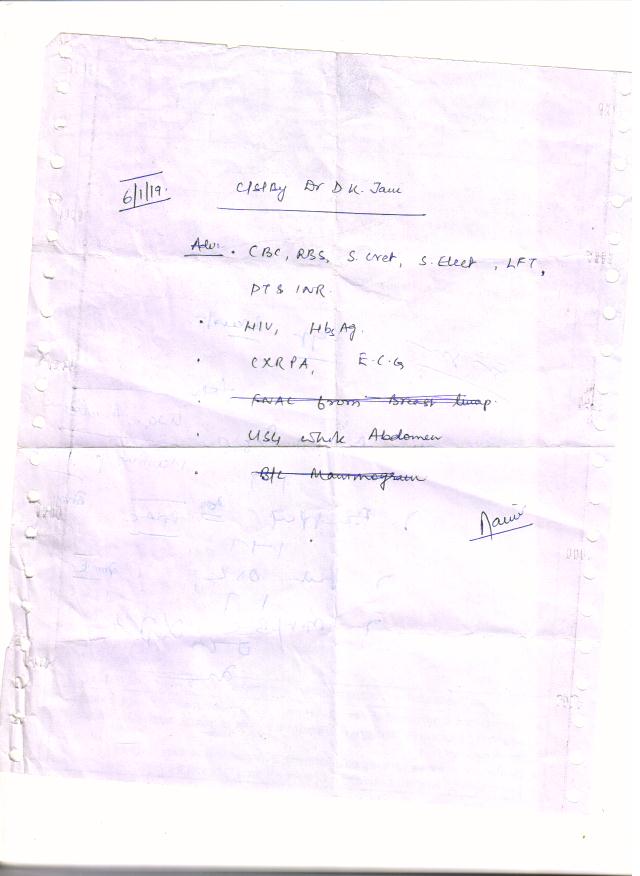 6/1/19.
C/S/By Dr D K. Jain
Adv. • CBC, RBS, S. Cret, S. Elect, LFT,
PT & INR.
• HIV, HbsAg.
• CXRPA, E.C.G
• FNAC from Breast lump.
• USG whole Abdomen
• B/L Mammogram